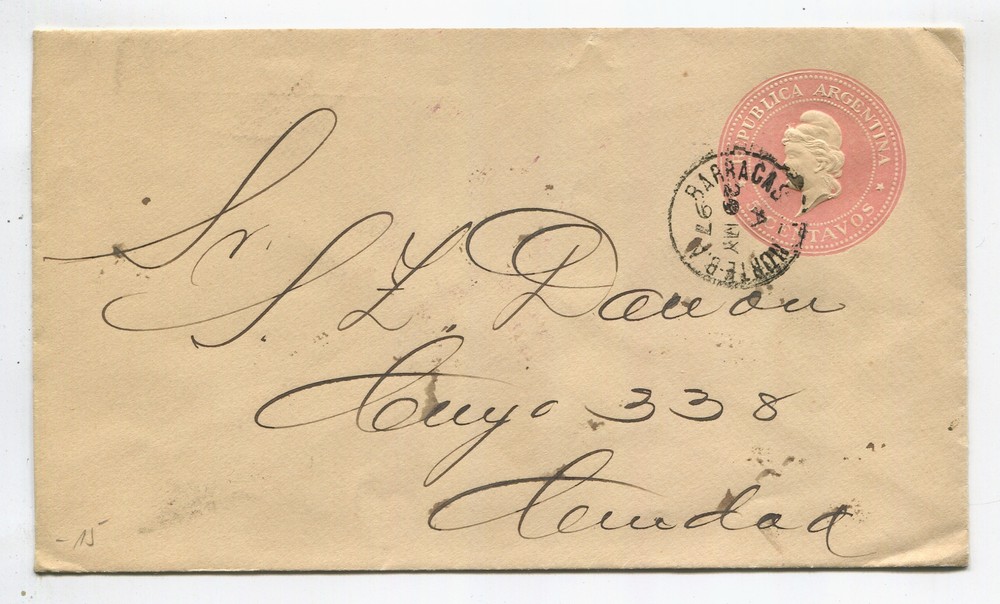 REPUBLICA ARGENTINA
CENTAVOS
BARRACAS
NORTE-B.A
97
Sr.
S. L. Danon
Cuyo 338
Ciudad
-15